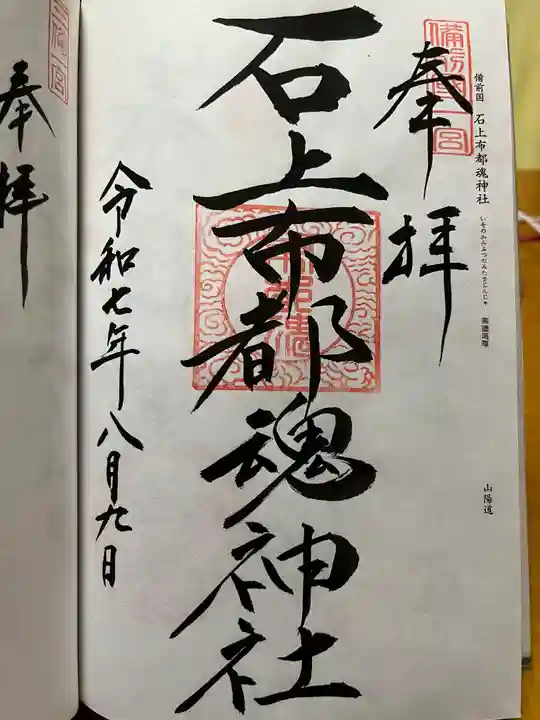 備前国一宮
備前国 石上布都魂神社
いそのかみふつのみたまじんじゃ
素盞嗚尊
山陽道
奉拝
石上布都魂神社
令和七年八月九日
奉拝